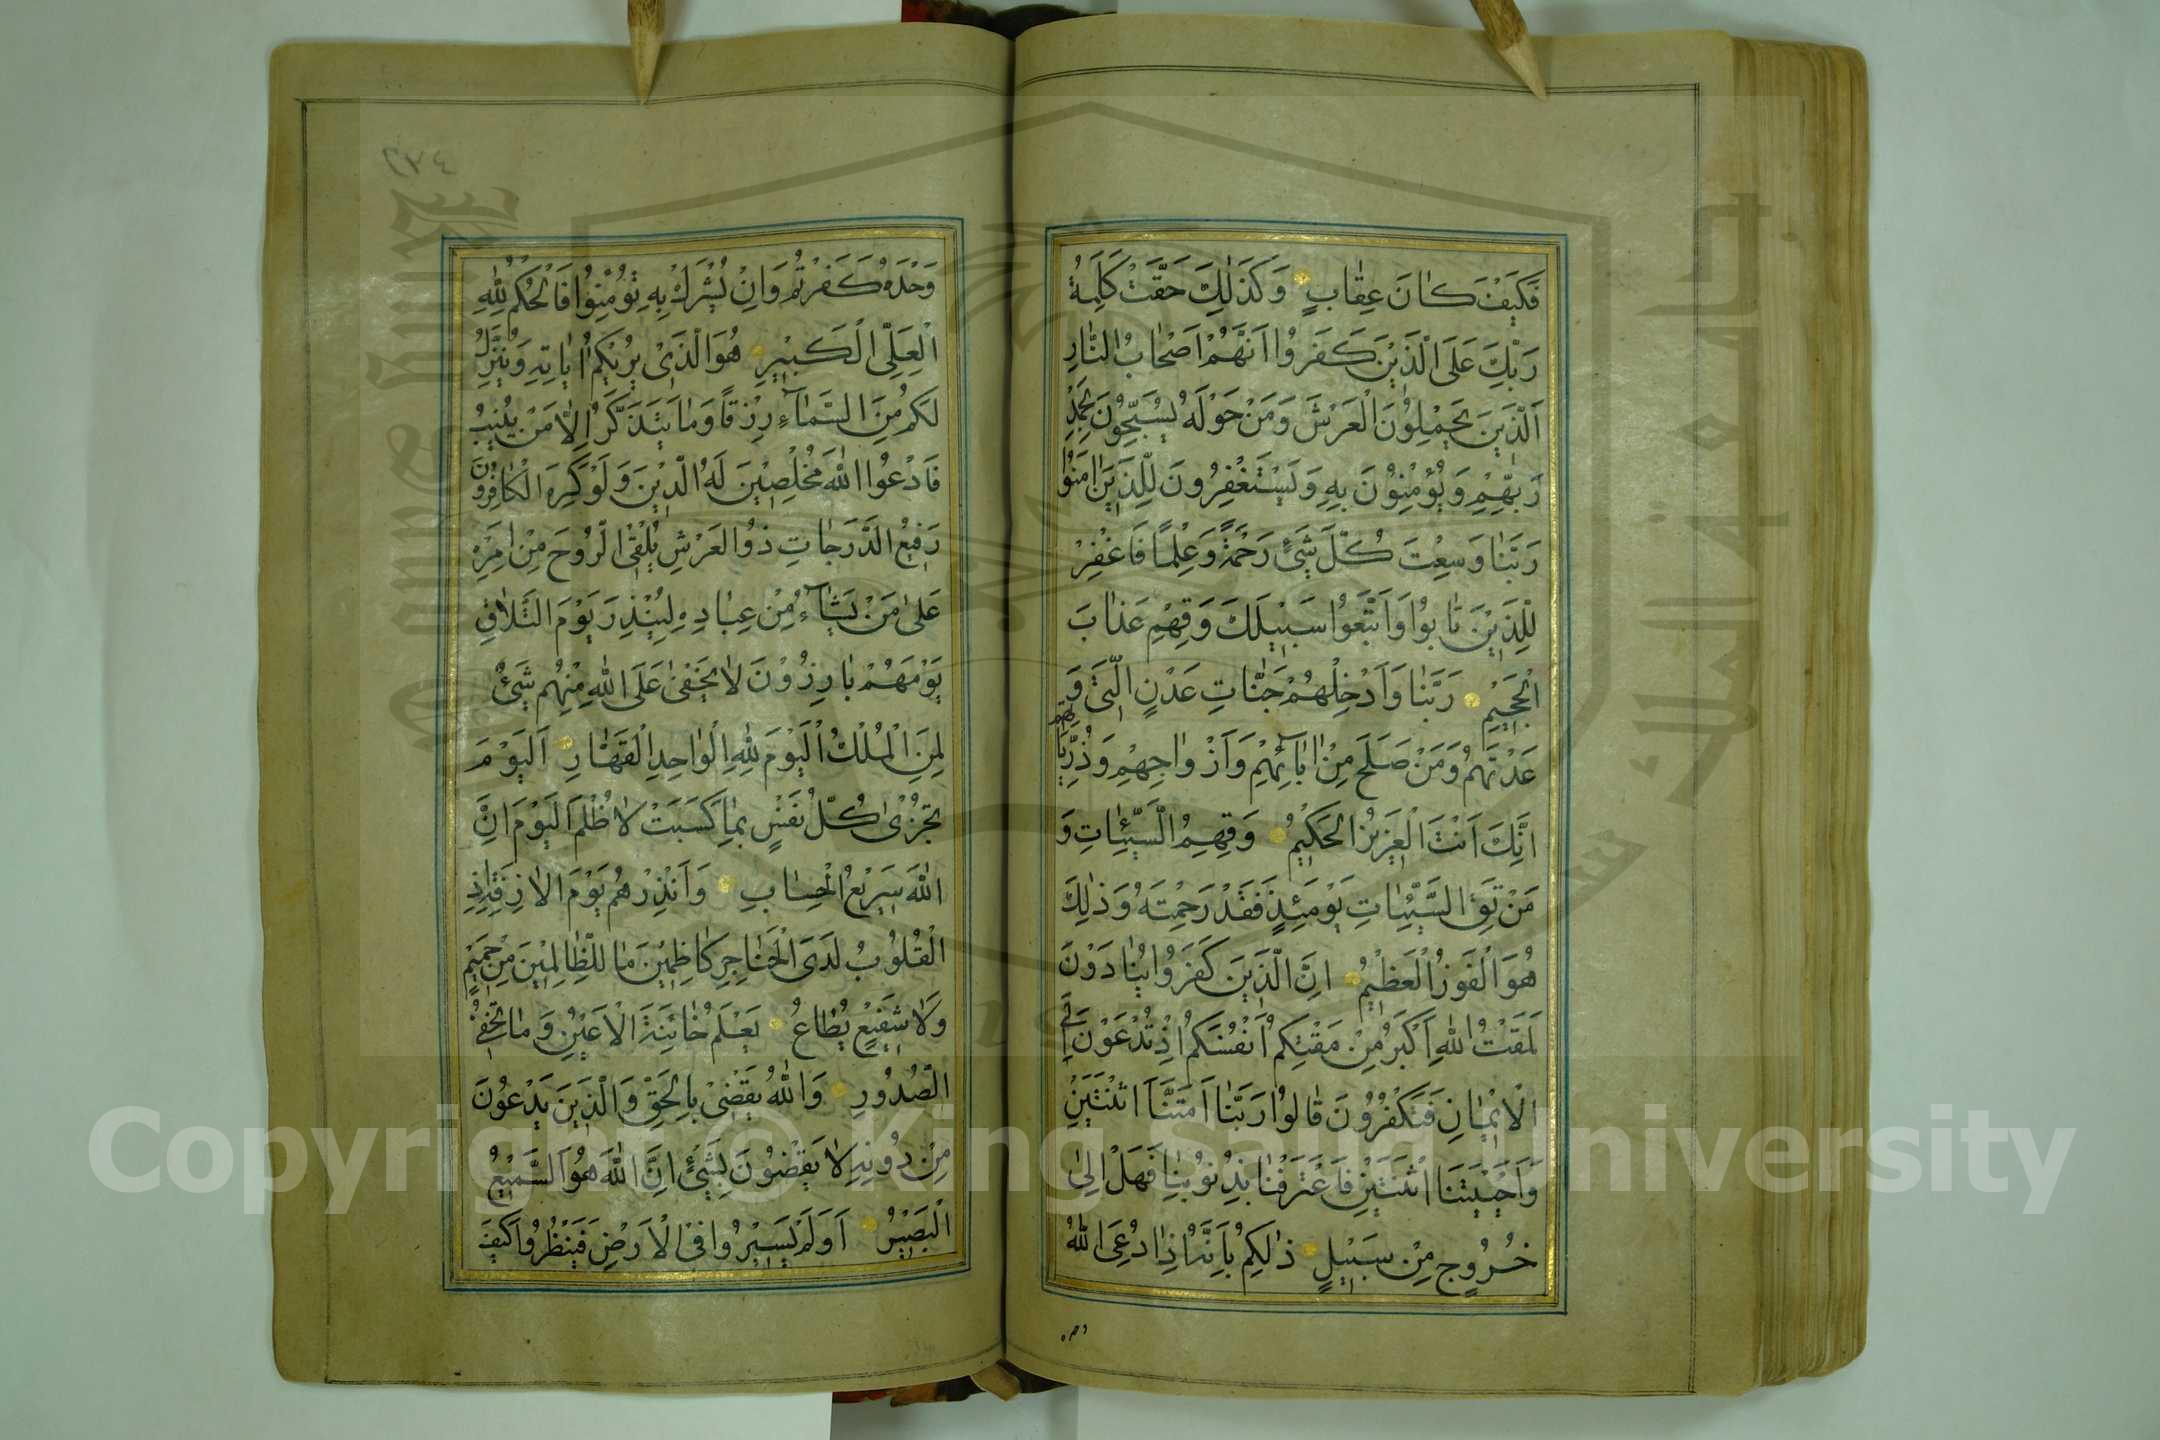 فَكَيْفَ كَانَ عِقَابِ وَكَذٰلِكَ حَقَّتْ كَلِمَةُ
رَبِّكَ عَلَى الَّذِيْنَ كَفَرُوا اَنَّهُمْ اَصْحَابُ النَّارِ
اَلَّذِيْنَ يَحْمِلُوْنَ الْعَرْشَ وَمَنْ حَوْلَهُ يُسَبِّحُوْنَ بِحَمْدِ
رَبِّهِمْ وَيُؤْمِنُوْنَ بِهِ وَيَسْتَغْفِرُوْنَ لِلَّذِيْنَ اٰمَنُوْا
رَبَّنَا وَسِعْتَ كُلَّ شَيْءٍ رَحْمَةً وَعِلْمًا فَاغْفِرْ
لِلَّذِيْنَ تَابُوا وَاتَّبَعُوا سَبِيْلَكَ وَقِهِمْ عَذَابَ
الْجَحِيْمِ رَبَّنَا وَاَدْخِلْهُمْ جَنَّاتِ عَدْنٍ الَّتِيْ وَ
عَدْتَهُمْ وَمَنْ صَلَحَ مِنْ اٰبَآئِهِمْ وَاَزْوَاجِهِمْ وَذُرِّيَّاتِهِمْ
اِنَّكَ اَنْتَ الْعَزِيْزُ الْحَكِيْمُ وَقِهِمُ السَّيِّئَاتِ وَ
مَنْ تَقِ السَّيِّئَاتِ يَوْمَئِذٍ فَقَدْ رَحِمْتَهُ وَذٰلِكَ
هُوَ الْفَوْزُ الْعَظِيْمُ اِنَّ الَّذِيْنَ كَفَرُوا يُنَادَوْنَ
لَمَقْتُ اللّٰهِ اَكْبَرُ مِنْ مَقْتِكُمْ اَنْفُسَكُمْ اِذْ تُدْعَوْنَ اِلَى
الْاِيْمَانِ فَتَكْفُرُوْنَ قَالُوْا رَبَّنَا اَمَتَّنَا اثْنَتَيْنِ
وَاَحْيَيْتَنَا اثْنَتَيْنِ فَاعْتَرَفْنَا بِذُنُوْبِنَا فَهَلْ اِلٰى
خُرُوْجٍ مِنْ سَبِيْلٍ ذٰلِكُمْ بِاَنَّهُ اِذَا دُعِيَ اللّٰهُ
وحده
٢٧٤
وَحْدَهُ كَفَرْتُمْ وَاِنْ يُشْرَكْ بِهِ تُؤْمِنُوْا فَالْحُكْمُ لِلّٰهِ
الْعَلِيِّ الْكَبِيْرِ هُوَ الَّذِيْ يُرِيْكُمْ اٰيَاتِهِ وَيُنَزِّلُ
لَكُمْ مِنَ السَّمَآءِ رِزْقًا وَمَا يَتَذَكَّرُ اِلَّا مَنْ يُنِيْبُ
فَادْعُوا اللّٰهَ مُخْلِصِيْنَ لَهُ الدِّيْنَ وَلَوْ كَرِهَ الْكَافِرُوْنَ
رَفِيْعُ الدَّرَجَاتِ ذُو الْعَرْشِ يُلْقِي الرُّوْحَ مِنْ اَمْرِهِ
عَلٰى مَنْ يَشَآءُ مِنْ عِبَادِهِ لِيُنْذِرَ يَوْمَ التَّلَاقِ
يَوْمَ هُمْ بَارِزُوْنَ لَا يَخْفٰى عَلَى اللّٰهِ مِنْهُمْ شَيْءٌ
لِمَنِ الْمُلْكُ الْيَوْمَ لِلّٰهِ الْوَاحِدِ الْقَهَّارِ اَلْيَوْمَ
تُجْزٰى كُلُّ نَفْسٍ بِمَا كَسَبَتْ لَا ظُلْمَ الْيَوْمَ اِنَّ
اللّٰهَ سَرِيْعُ الْحِسَابِ وَاَنْذِرْهُمْ يَوْمَ الْاٰزِفَةِ اِذِ
الْقُلُوْبُ لَدَى الْحَنَاجِرِ كَاظِمِيْنَ مَا لِلظَّالِمِيْنَ مِنْ حَمِيْمٍ
وَلَا شَفِيْعٍ يُطَاعُ يَعْلَمُ خَائِنَةَ الْاَعْيُنِ وَمَا تُخْفِي
الصُّدُوْرُ وَاللّٰهُ يَقْضِيْ بِالْحَقِّ وَالَّذِيْنَ يَدْعُوْنَ
مِنْ دُوْنِهِ لَا يَقْضُوْنَ بِشَيْءٍ اِنَّ اللّٰهَ هُوَ السَّمِيْعُ
الْبَصِيْرُ اَوَلَمْ يَسِيْرُوا فِي الْاَرْضِ فَيَنْظُرُوا كَيْفَ
Copyright © King Saud University